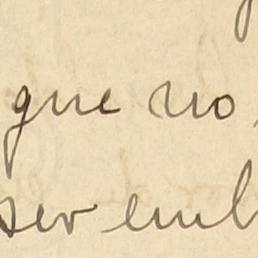 que no,
ser emb